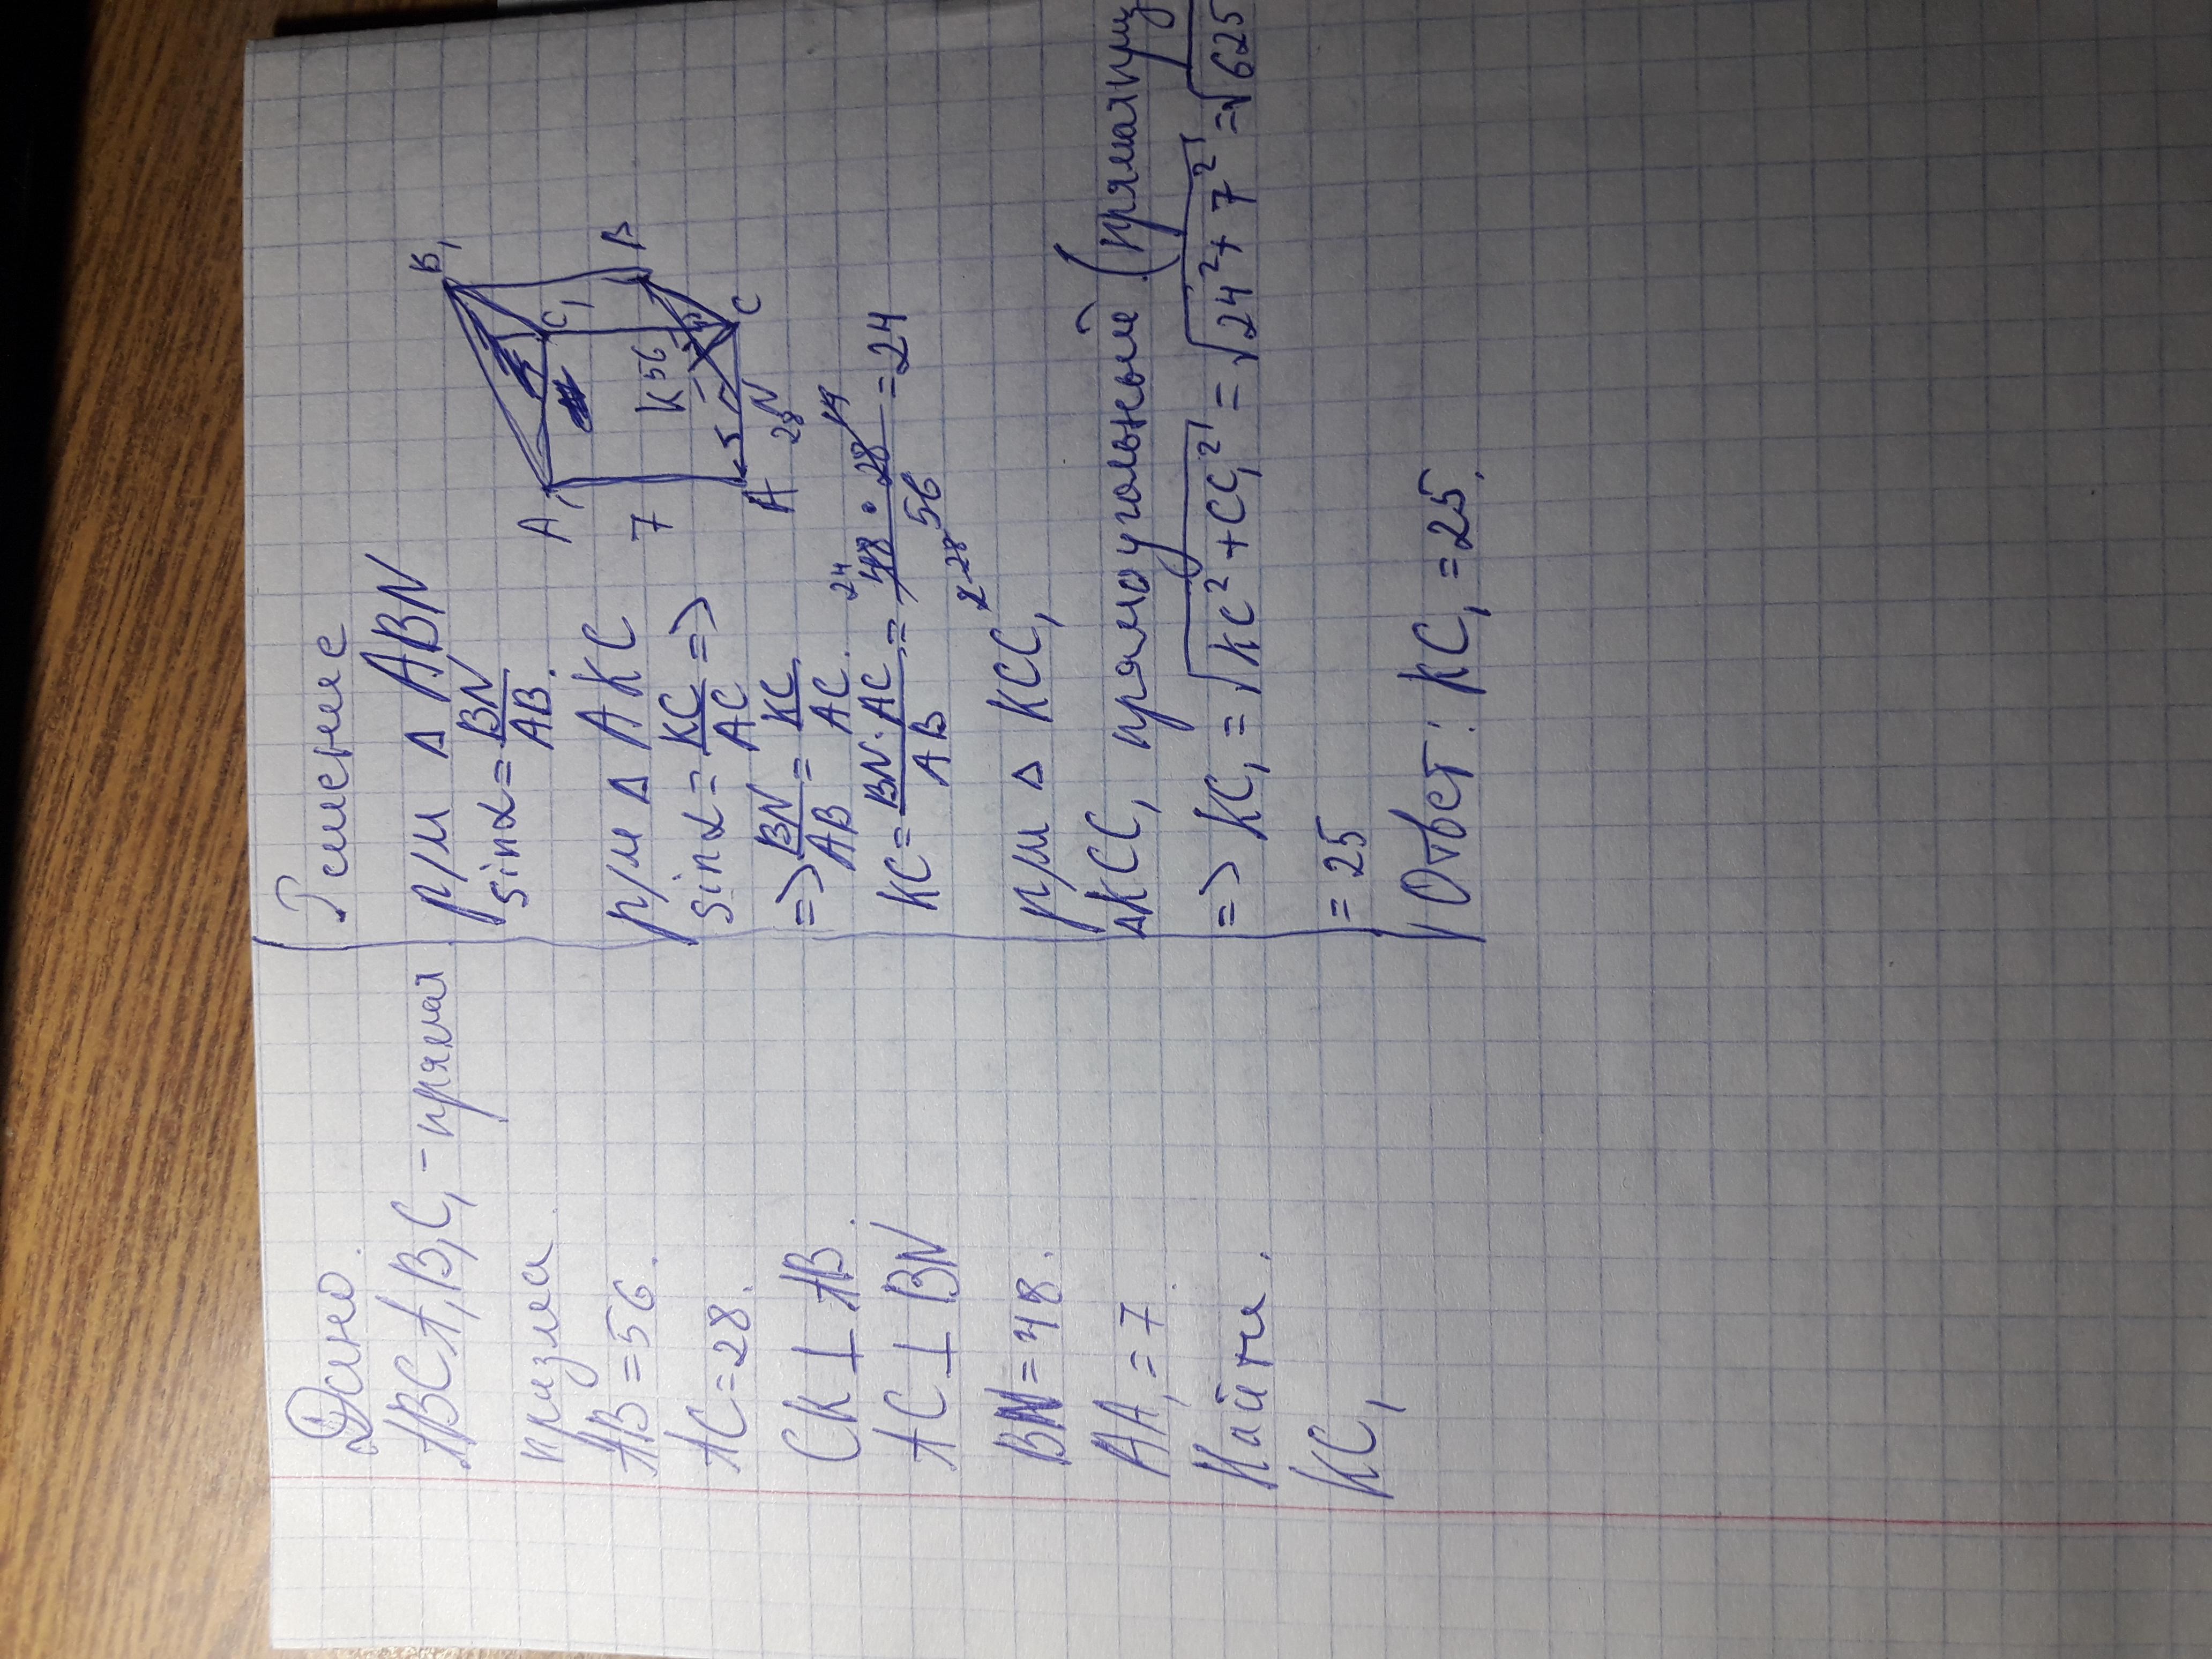 Дано.
ABCA₁B₁C₁ - прямая
призма
AB = 56.
AC = 28.
CK ⊥ AB.
AC ⊥ BN
BN = 48.
AA₁ = 7.
Найти.
KC₁
Решение
р/м Δ ABN
sin α = BN/AB.
р/м Δ AKC
sin α = KC/AC =>
=> BN/AB = KC/AC.
KC = BN·AC/AB = 48·28/56 = 24
24
14
2 28
р/м Δ KCC₁
ΔKCC₁ прямоугольный (прямая приз
=> KC₁ = √KC² + CC₁² = √24² + 7² = √625
= 25
Ответ: KC₁ = 25.
A₁
B₁
C₁
7
K 56
B
A
N
28
C